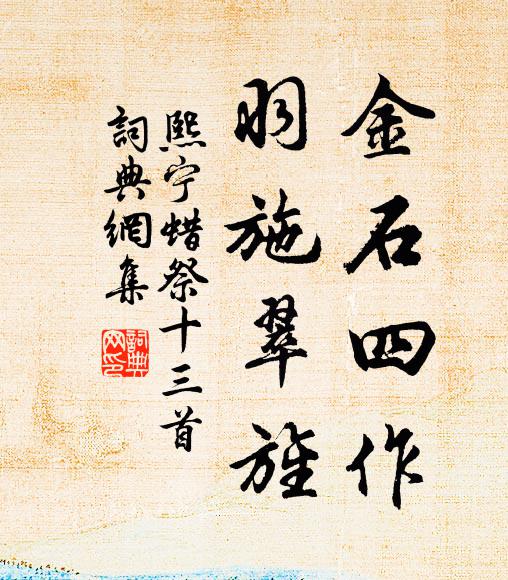 金石四作
羽施翠旌
熙宁蜡祭十三首
詞典網集
詞典网印